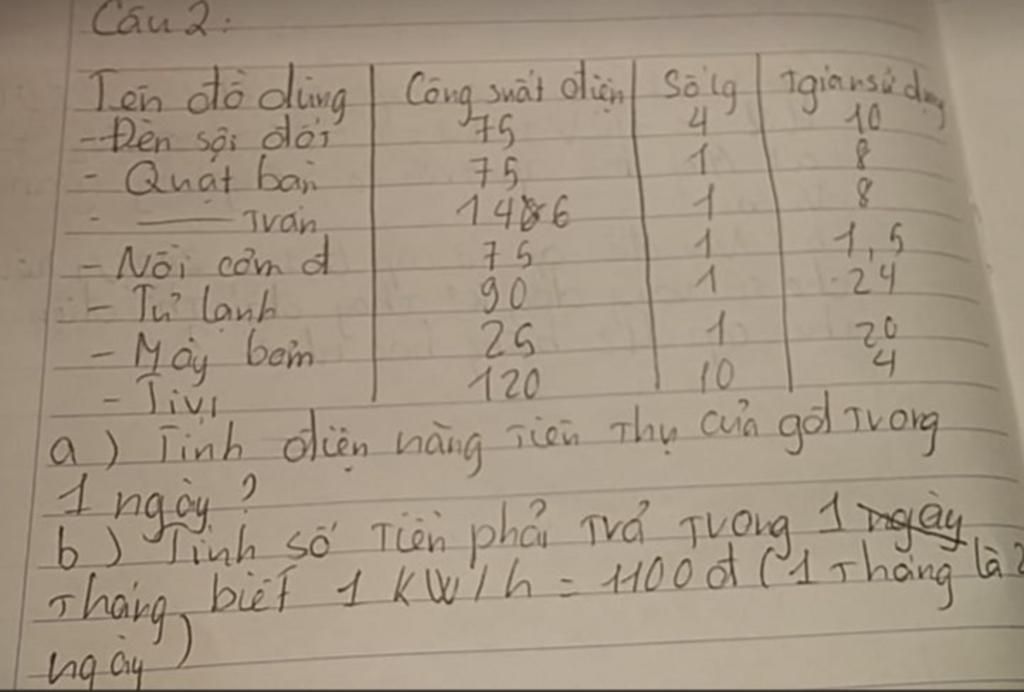 Câu 2:
Tên đồ dùng | Công suất điện | Số lg | Tgian sử dụng
- Đèn sợi đốt 75 4 10
- Quạt bàn 75 1 8
- —— Trần 1 8
- Nồi cơm đ 75 1 1,5
- Tủ lạnh 90 1 24
- Máy bơm 25 1 20
- Tivi 120 10 4
a) Tính điện năng tiên thụ của gđ trong
1 ngày?
b) Tính số tiền phải trả trong 1 ngày
tháng biết 1 KW/h = 1100 đ (1 tháng là
ngày)